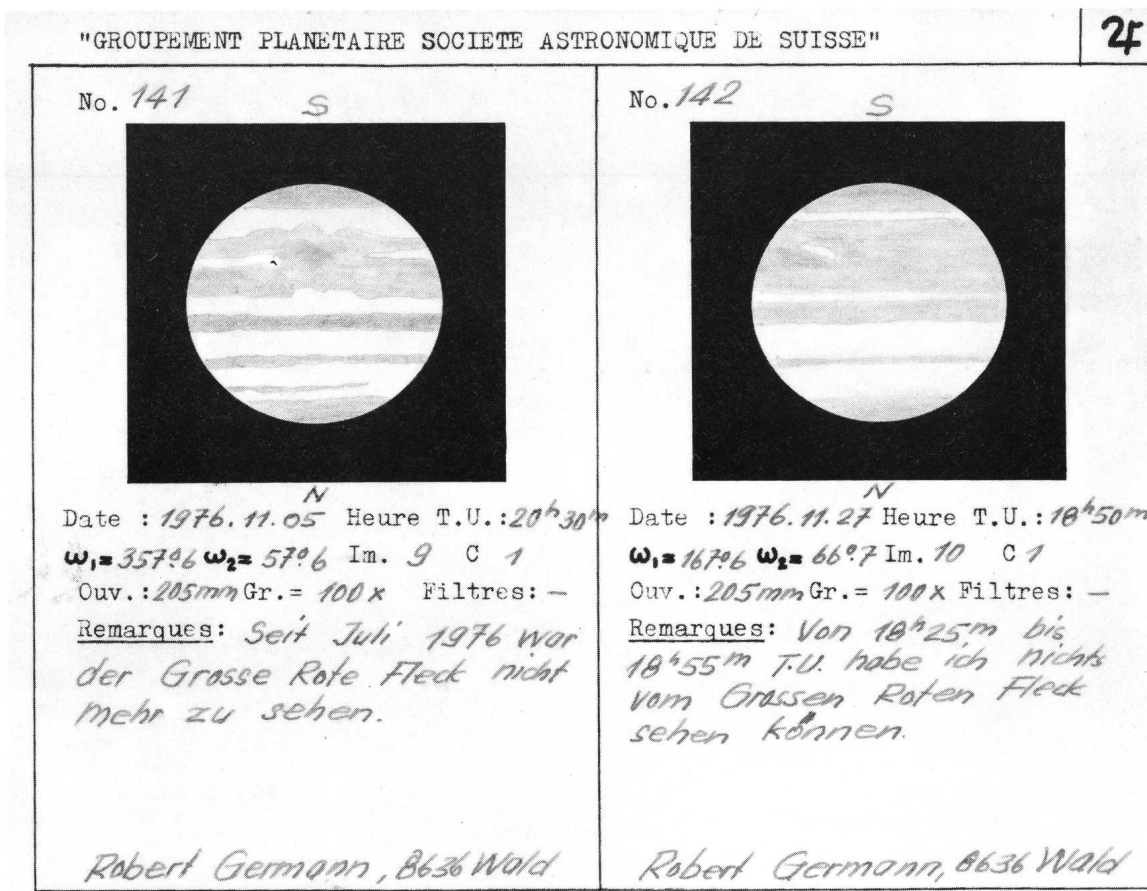 "GROUPEMENT PLANETAIRE SOCIETE ASTRONOMIQUE DE SUISSE"
No. 141
S
N
Date : 1976.11.05 Heure T.U.: 20ʰ30ᵐ
ω₁= 357°6 ω₂= 57°6 Im. 9 C 1
Ouv.: 205mm Gr.= 100x Filtres: —
Remarques: Seit Juli 1976 war
der Grosse Rote Fleck nicht
mehr zu sehen.
Robert Germann, 8636 Wald
No. 142
S
N
Date : 1976.11.27 Heure T.U.: 18ʰ50ᵐ
ω₁= 167°6 ω₂= 66°7 Im. 10 C 1
Ouv.: 205mm Gr.= 100x Filtres: —
Remarques: Von 18ʰ25ᵐ bis
18ʰ55ᵐ T.U. habe ich nichts
vom Grossen Roten Fleck
sehen können.
Robert Germann, 8636 Wald